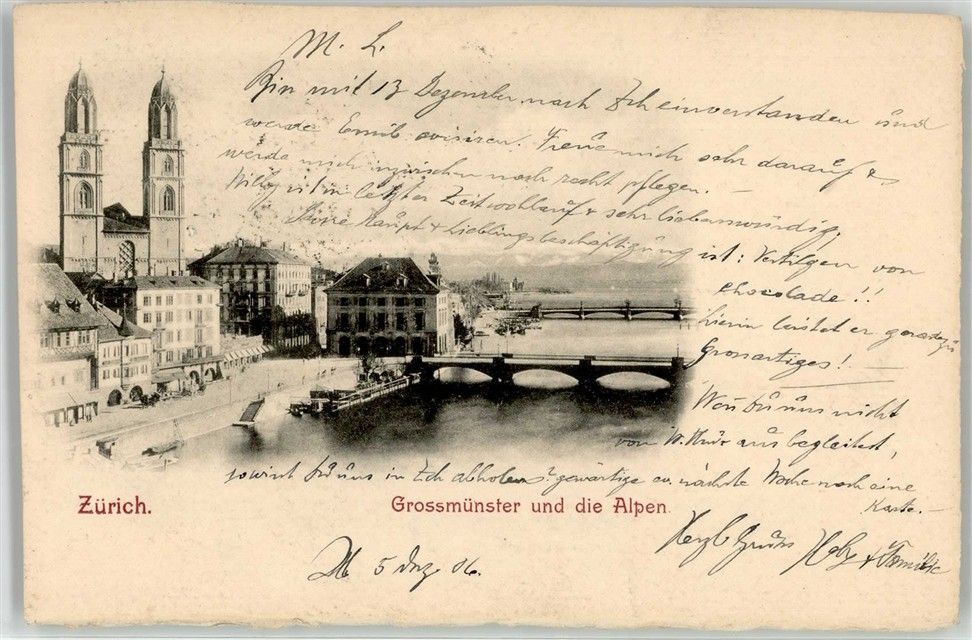 M. L.
Bin mit 13 Dezember nach Zch einverstanden und
werde Emil avisiren. Freue mich sehr darauf &
werde mich inzwischen noch recht pflegen. —
Willy ist in letzter Zeit wohlauf & sehr liebenswürdig,
Haupt & Lieblingsbeschäftigung ist: Vertilgen von
Chocolade!!
hierin leistet er geradezu
Grossartiges!
Wenn Du uns nicht
von W.thur aus begleitest,
so wirst Du uns in Zch abholen? gewärtige ev. nächste Woche noch eine
Karte. —
Herzl Grüss
& Familie
Zürich.
Grossmünster und die Alpen.
5 Dez 06.